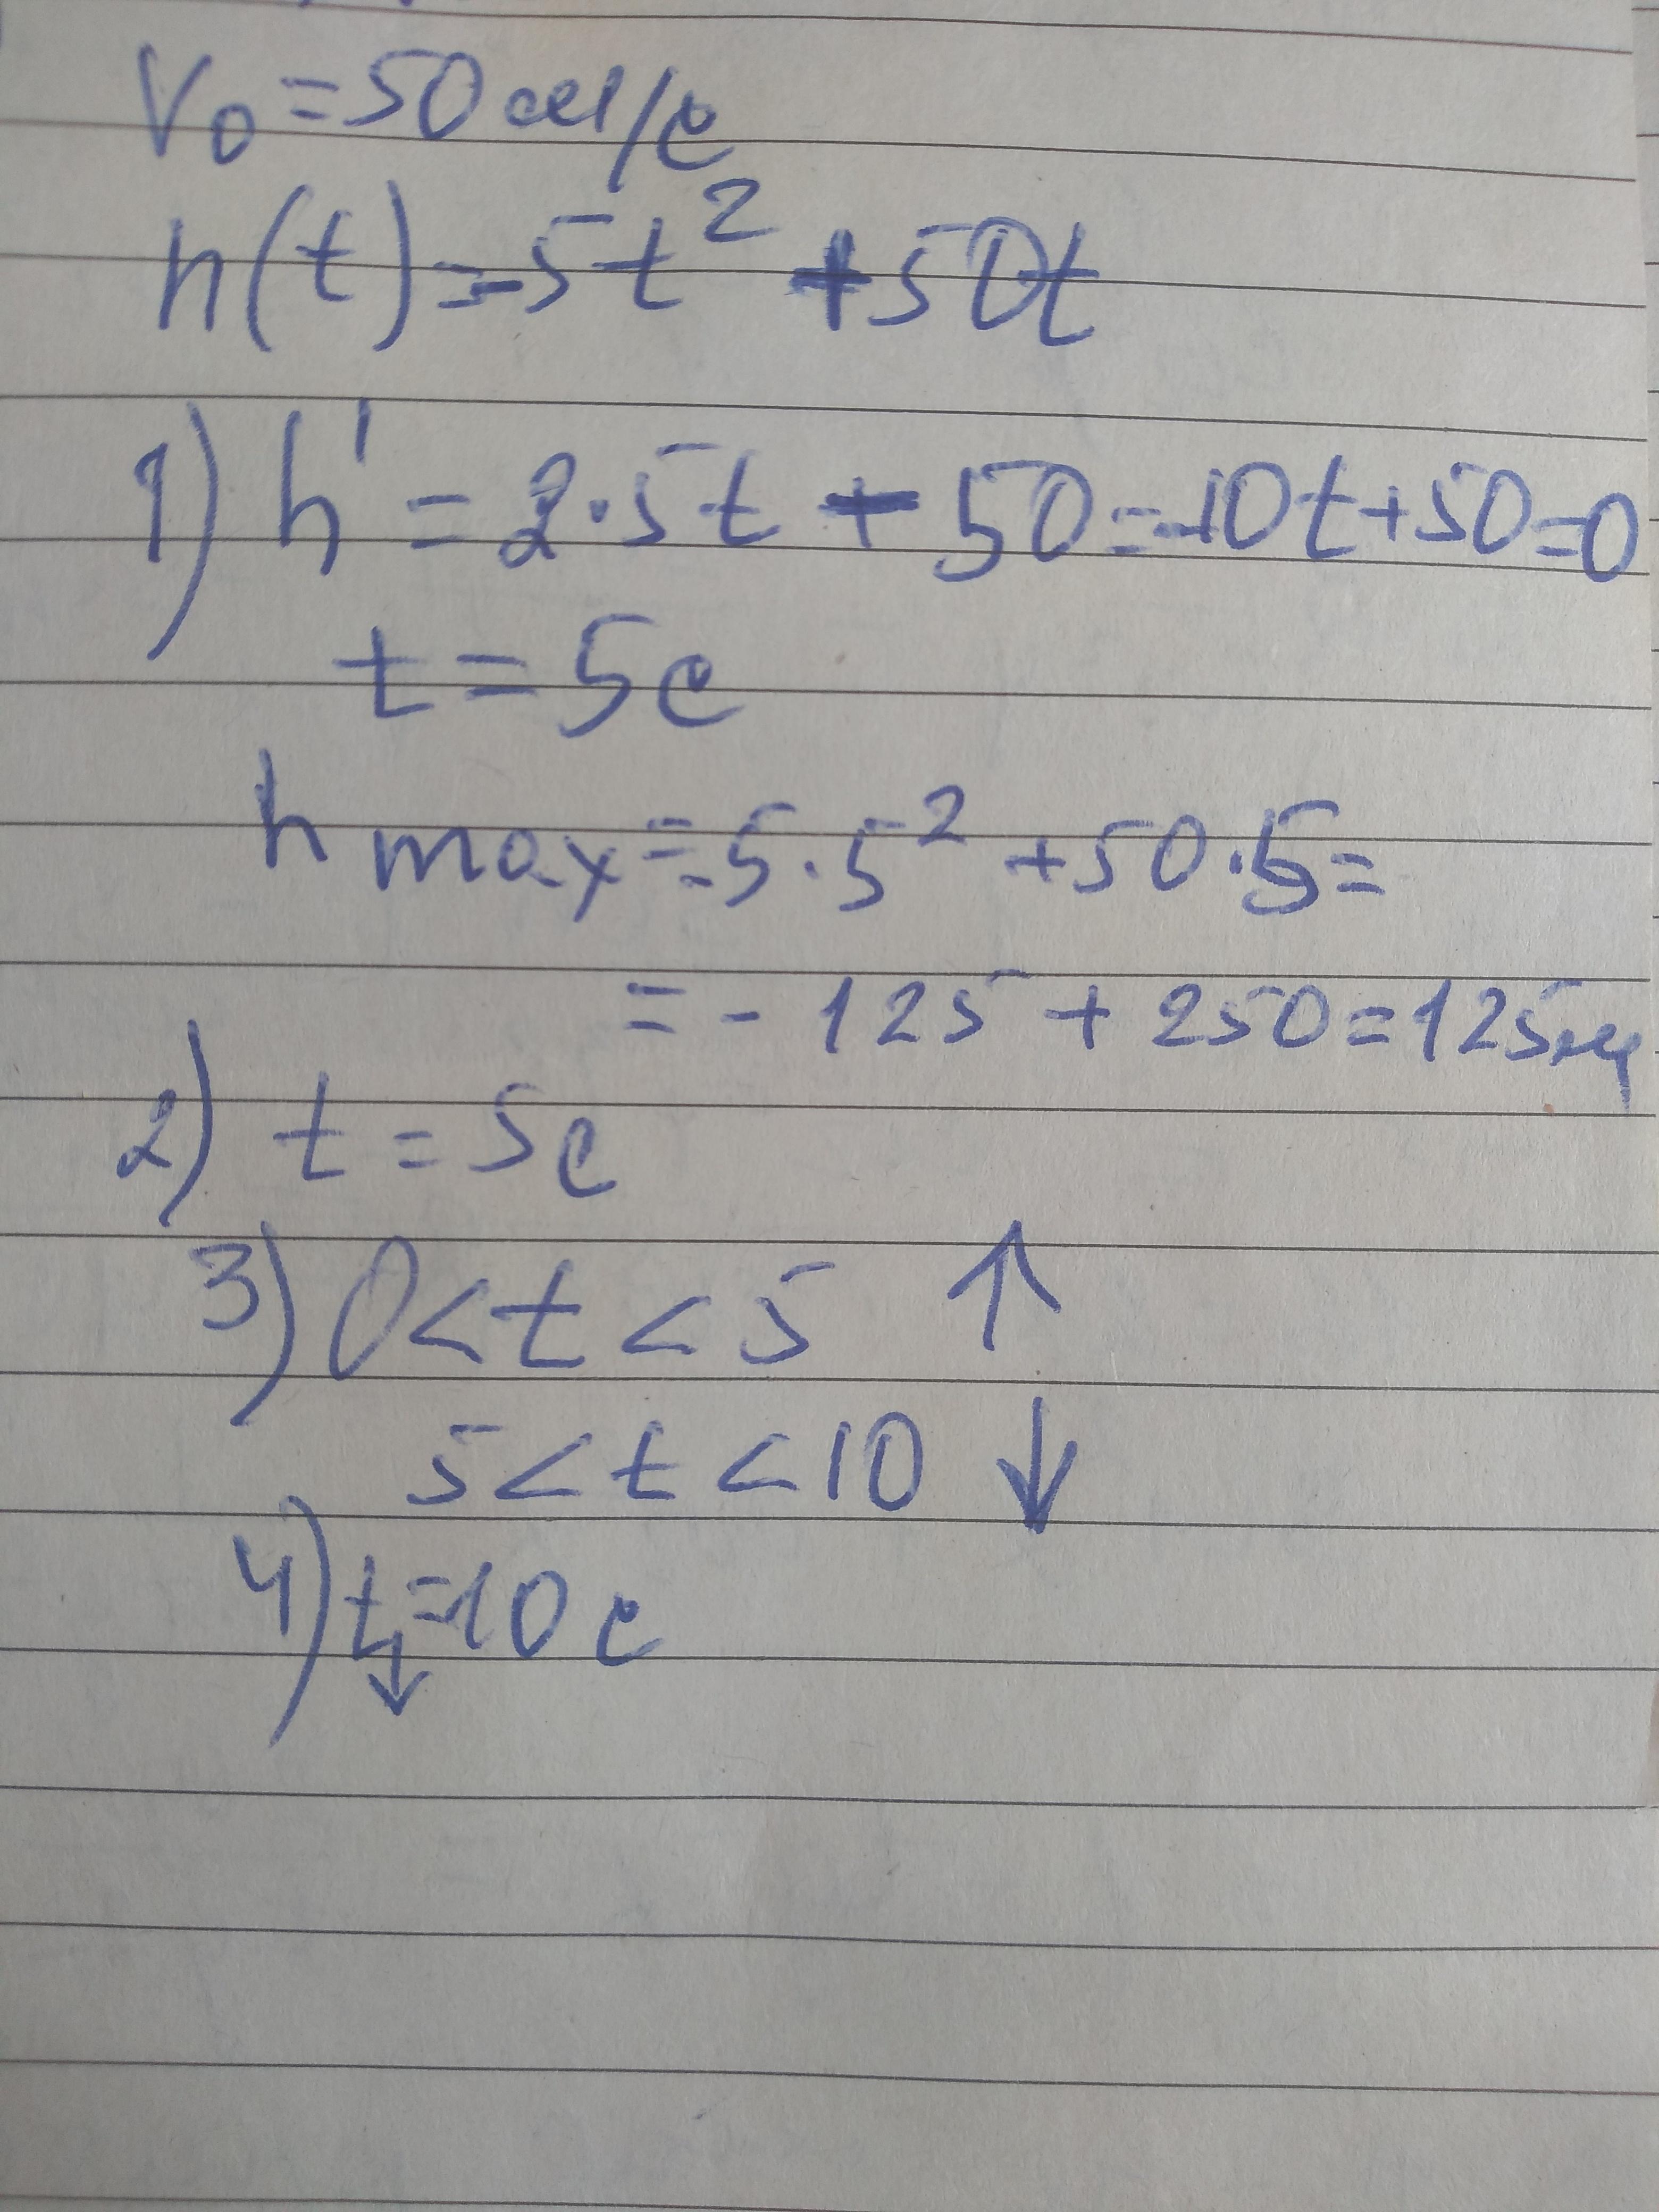 V₀ = 50 м/с
h(t) = -5t² + 50t
1) h' = 2·5t + 50 = -10t + 50 = 0
t = 5с
h max = -5·5² + 50·5 =
= - 125 + 250 = 125м
2) t = 5с
3) 0 < t < 5 ↑
5 < t < 10 ↓
4) t↓ = 10 с